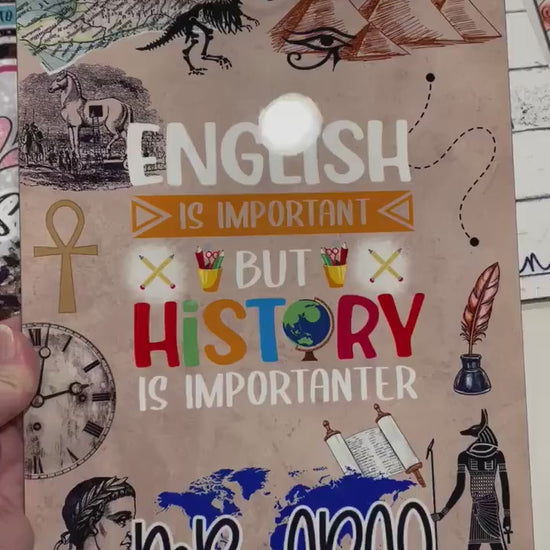 ENGLISH
IS IMPORTANT
BUT
HiSTORY
IS IMPORTANTER